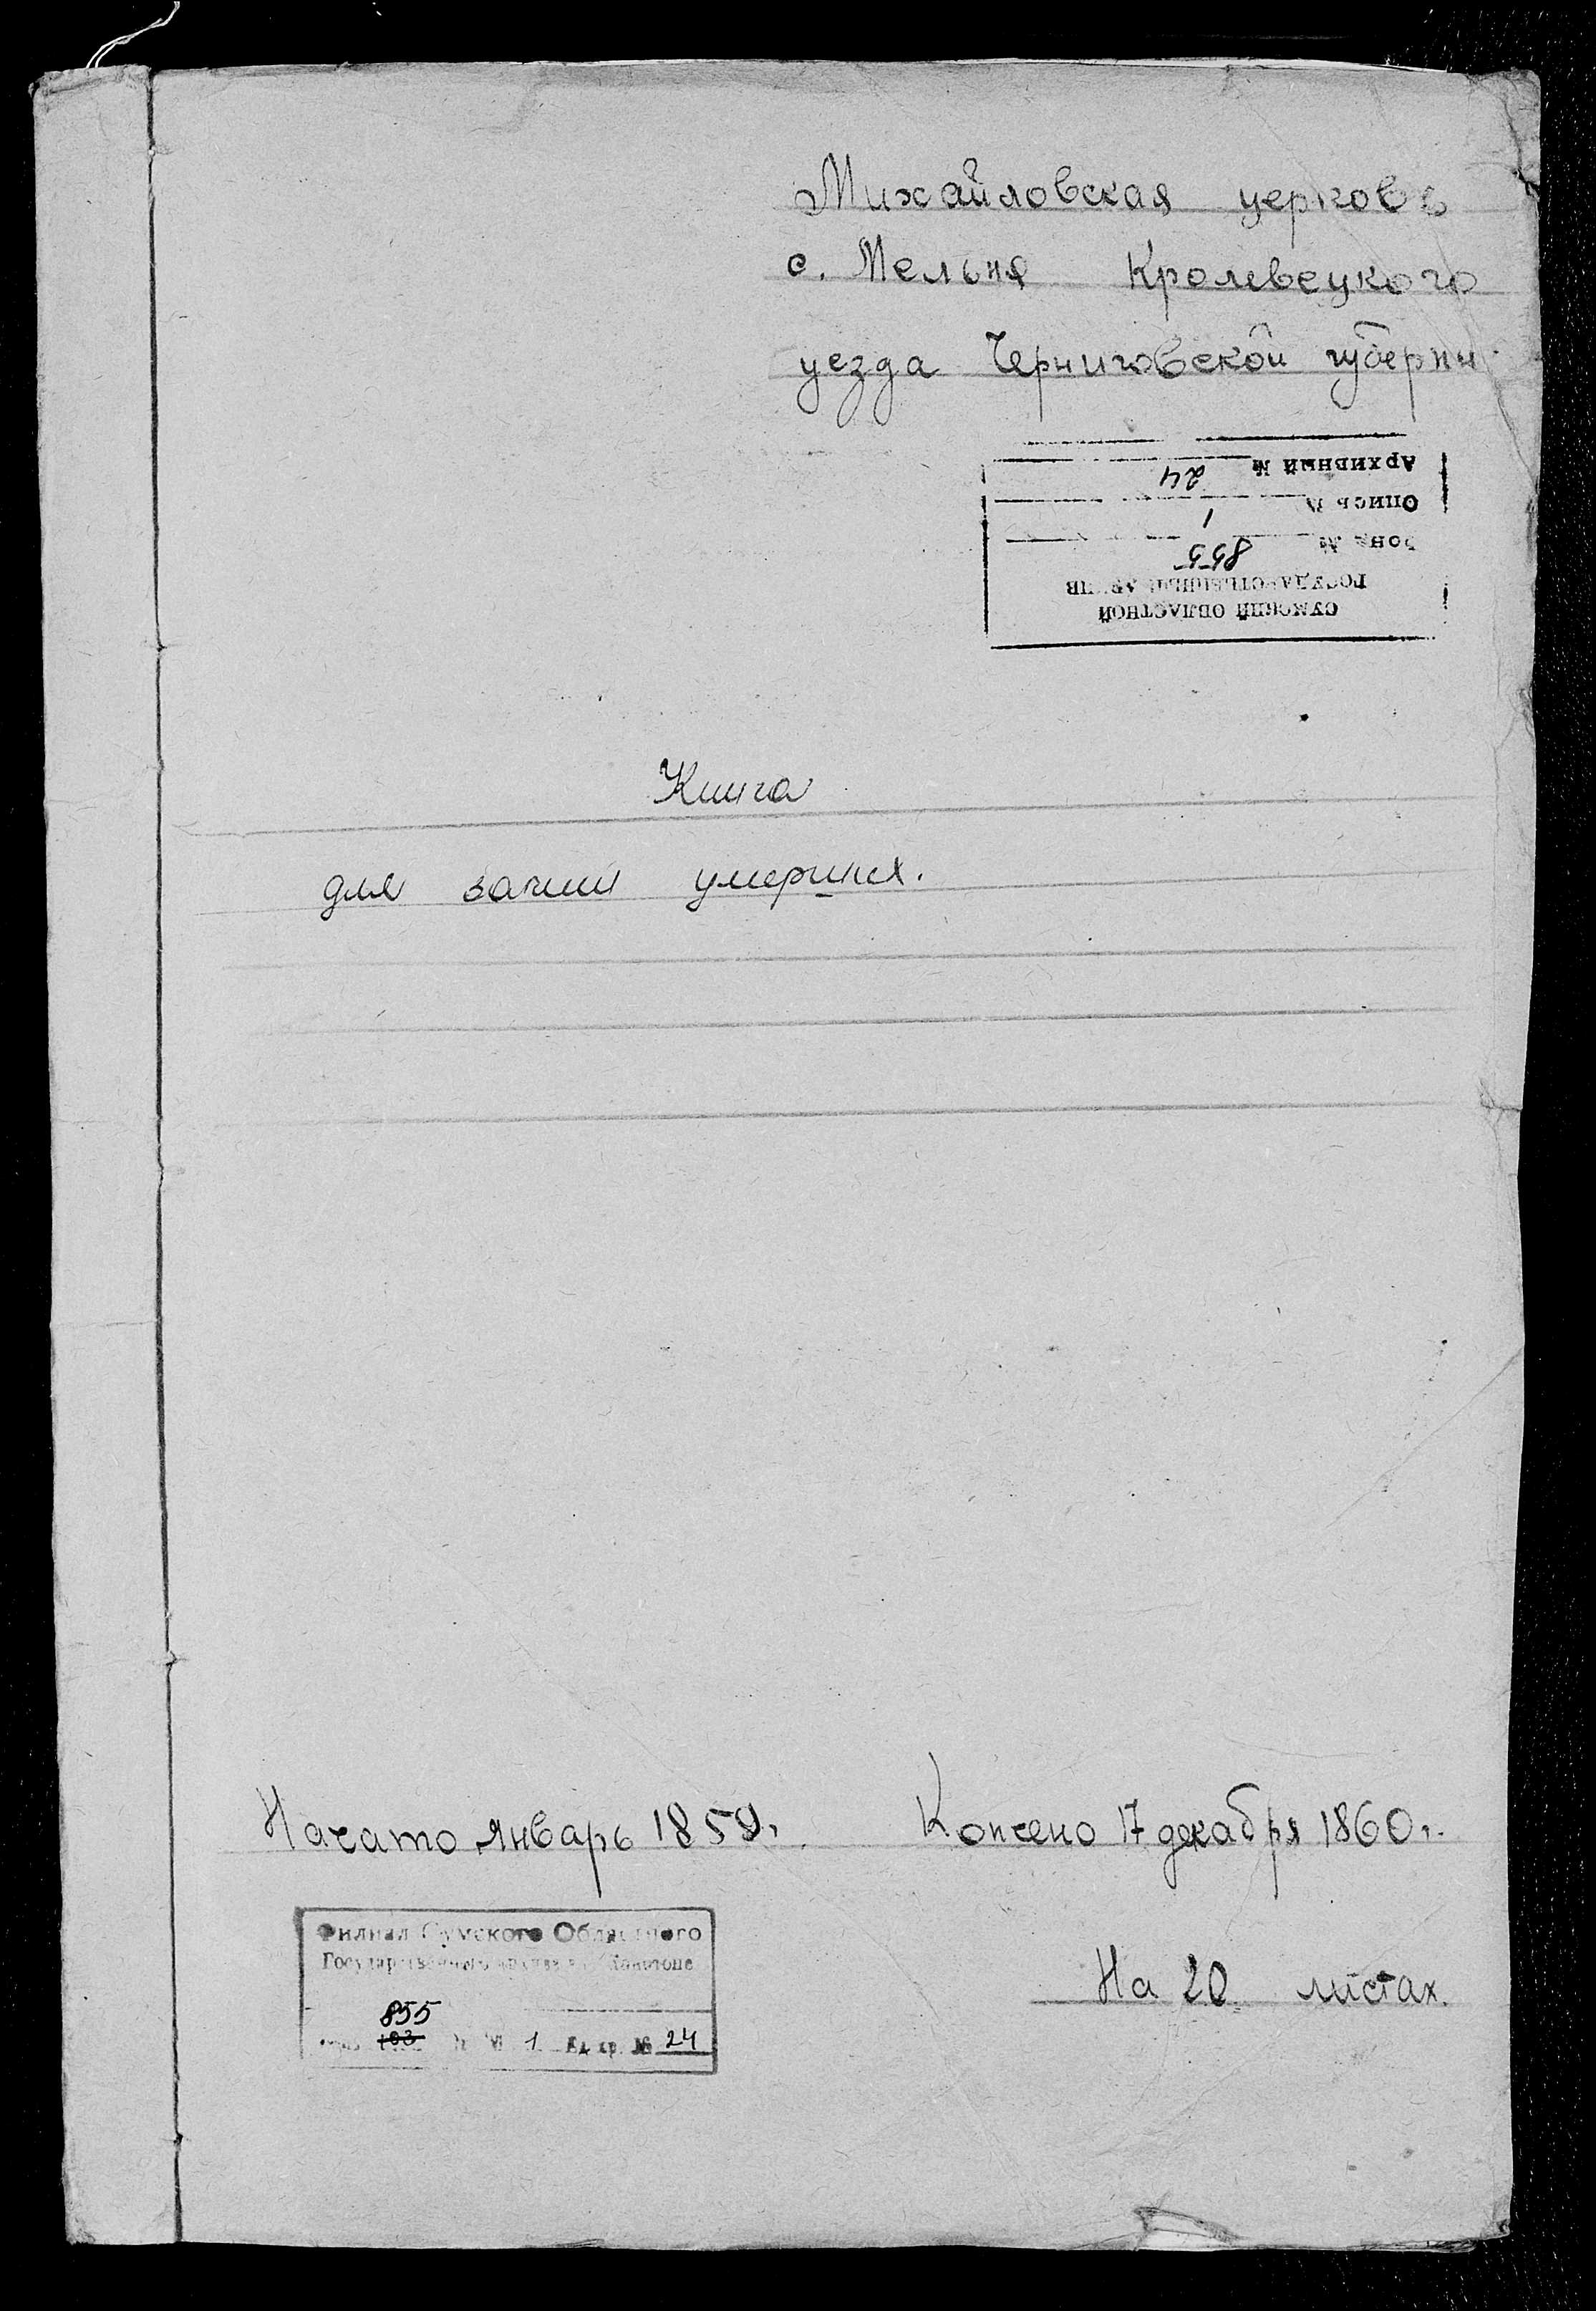 Михайловская церковь
с. Мельня Кролевецкого
уезда Черниговской губерни
СУМСКИЙ ОБЛАСТНОЙ
ГОСУДАРСТВЕННЫЙ АРХИВ
Фонд № 855
Опись № 1
Архивный № 24
Книга
для записи умерших.
Начато январь 1859г. Кончено 17 декабря 1860г.
Филиал Сумского Областного
Государственного архива в г. Конотопе
855
103 1 Ед. хр. № 24
На 20 листах.